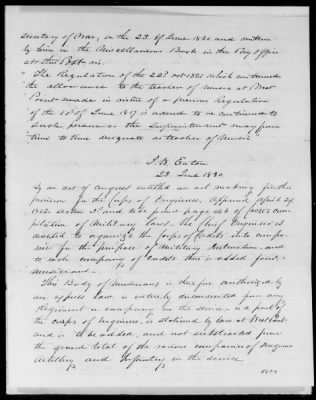 secretary of War, on the 23 of June 1830 and written
by him in the Miscellaneous Book in the Pay office
at that Post viz.
"The Regulation of the 22d oct 1825 which continued
the allowance to the teacher of music at West
Point made in virtue of a previous Regulation
of the 10th of June 1817 is extended to or continued to
such person as the Superintendent may from
"time to time designate as teacher of Music"
J. H. Eaton
23 June 1830
By an act of congress entitled an act making further
provision for the Corps of Engineers, approved April 29
1812 section 3d and see page 46 of Cross's com-
pilation of Military laws. The Chief Engineer is
directed to organize the Corps of Cadets into compa-
nies for the purpose of Military Instruction, and
to each company of Cadets there is added four
musicians.
This Body of Musicians is therefore authorized by
an express law, is entirely disconnected from any
Regiment or company in the service, is a part of
the corps of Engineers, is stationed by law at West Point
and is to be added, and not subtracted from
the grand total of the various companies of Dragoons
Artillery and Infantry in the service
over